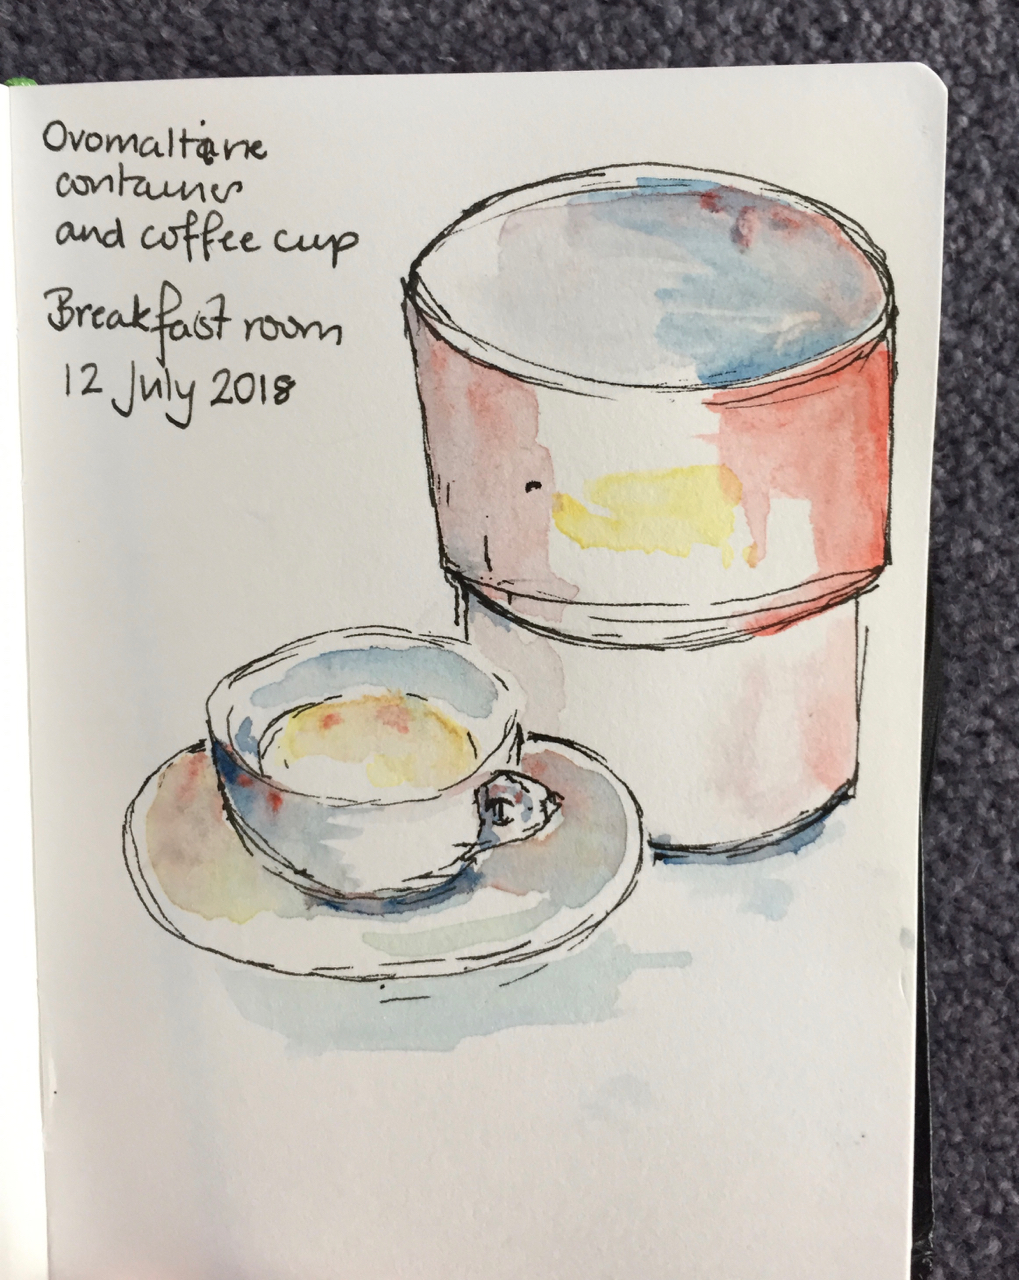 Ovomaltine
container
and coffee cup
Breakfast room
12 July 2018